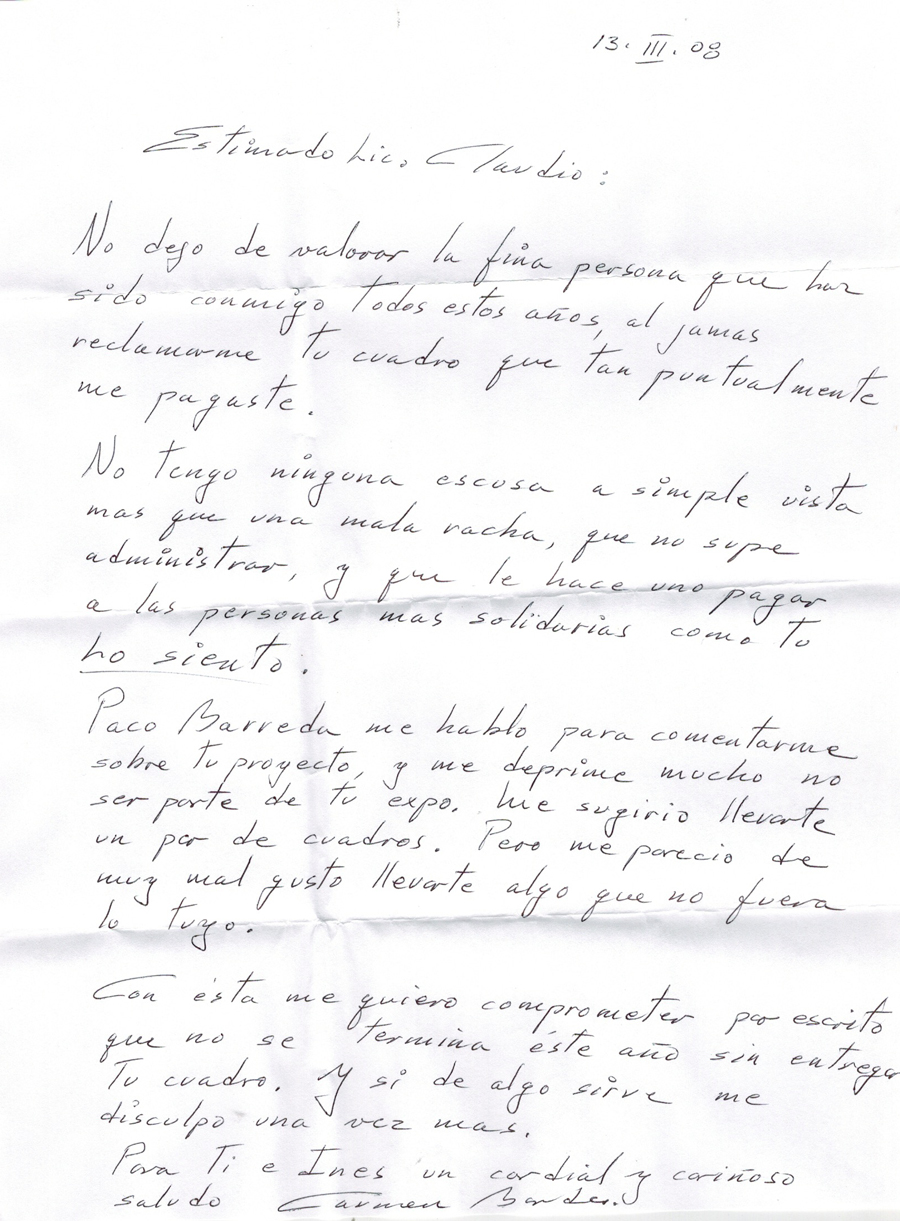 13. III. 08
Estimado Lic. Claudio:
No dejo de valorar la fina persona que haz
sido conmigo todos estos años, al jamas
reclamarme tu cuadro que tan puntualmente
me pagaste.
No tengo ninguna escusa a simple vista
mas que una mala racha, que no supe
administrar, y que le hace uno pagar
a las personas mas solidarias como tu
Lo siento.
Paco Barreda me hablo para comentarme
sobre tu proyecto, y me deprime mucho no
ser parte de tu expo. Me sugirio llevarte
un par de cuadros. Pero me parecio de
muy mal gusto llevarte algo que no fuera
lo tuyo.
Con ésta me quiero comprometer por escrito
que no se termina éste año sin entregar
Tu cuadro. Y si de algo sirve me
disculpo una vez mas.
Para Ti e Ines un cordial y cariñoso
saludo Carmen